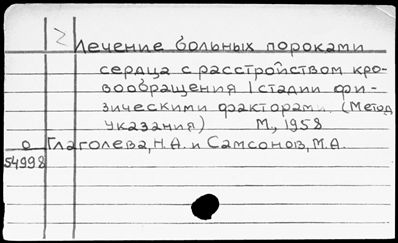 2 Лечение больных пороками
сердца с расстройством кро-
вообращения I стадии фи-
зическими факторами. (Метод.
указания) М., 1958
о Глаголева, Н.А. и Самсонов, М.А.
54998